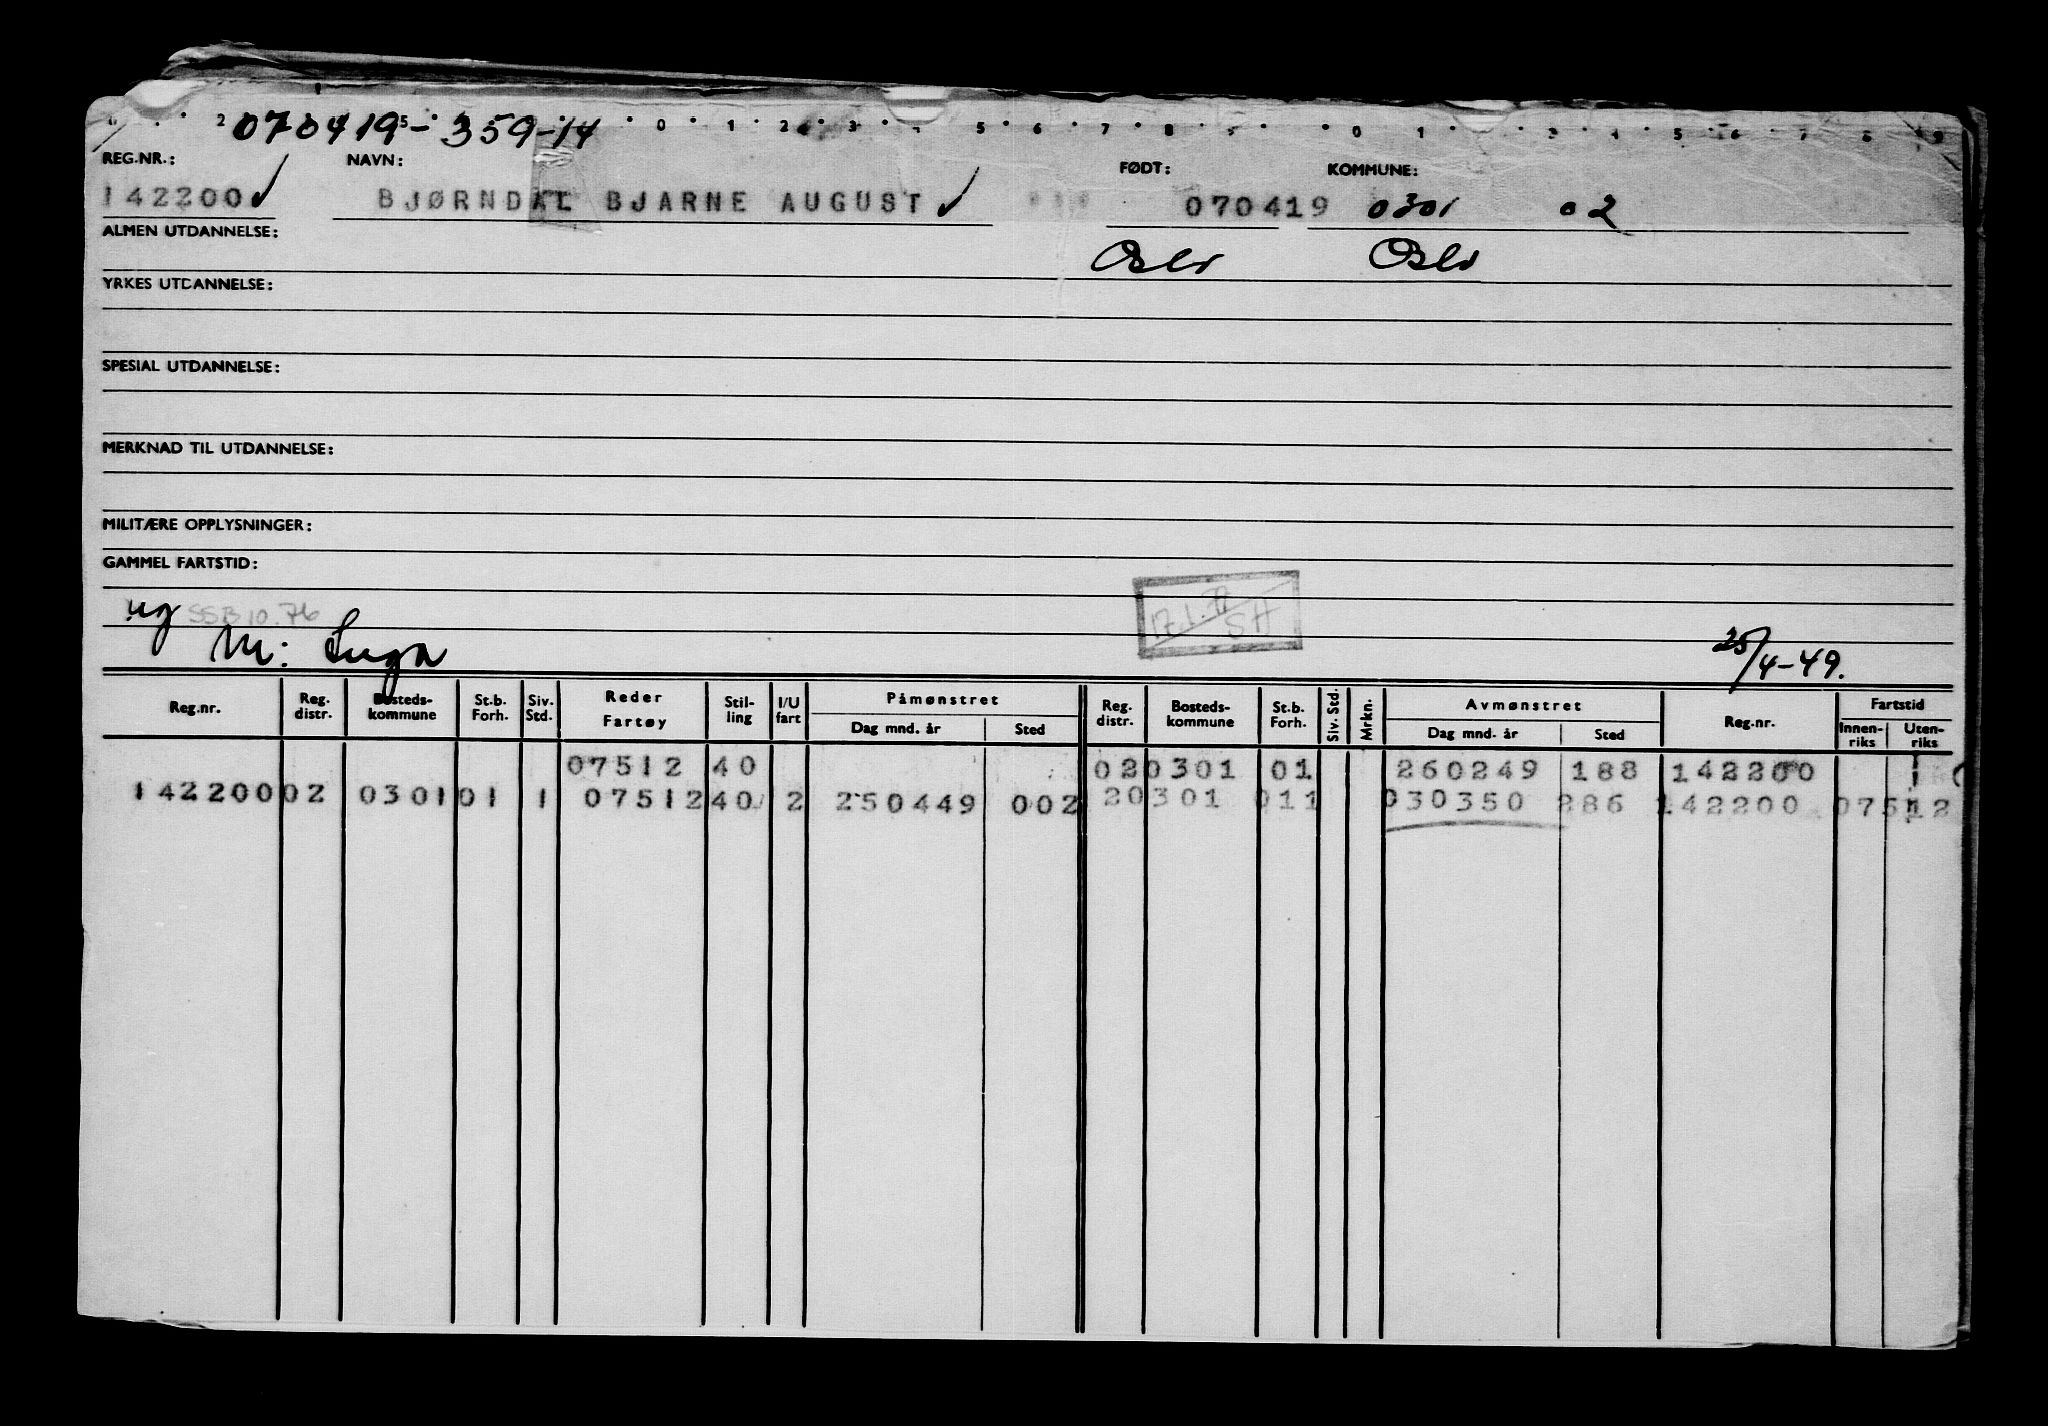 070419-359-14
REG.NR.: NAVN: FØDT: KOMMUNE:
142200 BJØRNDAL BJARNE AUGUST 070419 0301 02
ALMEN UTDANNELSE: Oslo Oslo
YRKES UTDANNELSE:
SPESIAL UTDANNELSE:
MERKNAD TIL UTDANNELSE:
MILITÆRE OPPLYSNINGER:
GAMMEL FARTSTID:
ug SSB 10.76
M: Inga 25/4-49.
Reg.nr. Reg. distr. Bosteds-kommune St.b. Forh. Siv. Std. Reder Fartøy Stil-ling I/U fart Påmønstret Dag mnd. år Sted Reg. distr. Bosteds-kommune St.b. Forh. Siv. Std. Mrkn. Avmønstret Dag mnd. år Sted Reg.nr. Fartstid Innen-riks Uten-riks
07512 40 020301 01 260249 188 142200
142200 02 0301 01 1 07512 40 2 250449 002 20301 011 030350 286 142200 07512